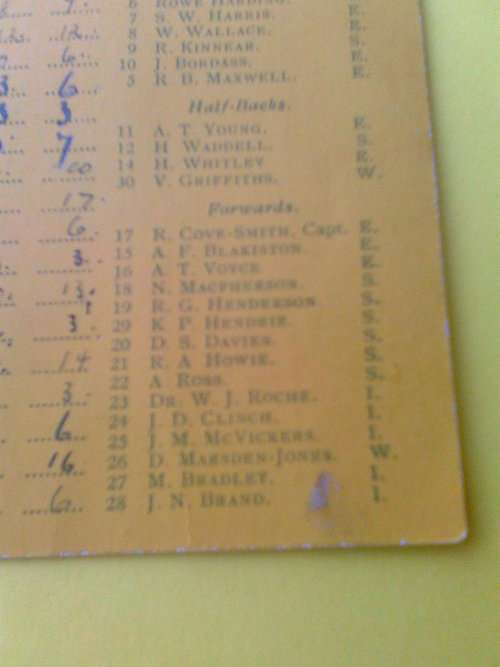 6 ROWE HARDING.
7 7 S. W. HARRIS. E.
12. 8 W. WALLACE. E.
9 R. KINNEAR. S.
6 10 J. BORDASS. E.
3 6 5 R B. MAXWELL. E.
3 3 Half-Backs.
7 11 A. T. YOUNG. E.
10 12 H WADDELL. S.
14 H. WHITLEY E.
30 V. GRIFFITHS. W.
17. Forwards.
6. 17 R. COVE-SMITH, Capt. E.
3. 15 A. F. BLAKISTON. E.
16 A. T. VOYCE E.
13. 18 N. MACPHERSON. S.
19 R. G. HENDERSON S.
3. 29 K P. HENDRIE. S.
20 D. S. DAVIES. S.
14 21 R. A HOWIE. S.
22 A ROSS. S.
3. 23 DR. W. J. ROCHE. I.
6. 24 J. D. CLINCH. I.
25 J. M. MCVICKERS. I.
16 26 D. MARSDEN-JONES. W.
27 M. BRADLEY. I.
6. 28 J. N. BRAND. I.